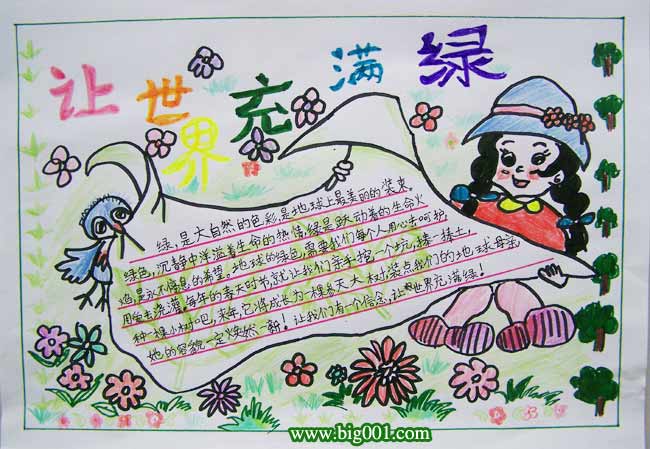 让世界充满绿
绿,是大自然的色彩,是地球上最美丽的装束。
绿色,沉静中洋溢着生命的热情,绿是跃动着的生命火
焰,是永不停息的希望。地球的绿色,需要我们每个人用心去呵护,
用爱去浇灌,每年的春天时节,就让我们亲手挖一个坑,捧一捧土,
种一棵小树吧,来年,它将成长为一棵参天大树,装点我们的地球母亲
她的容貌一定焕然一新!让我们有一个信念:让世界充满绿!
www.big001.com